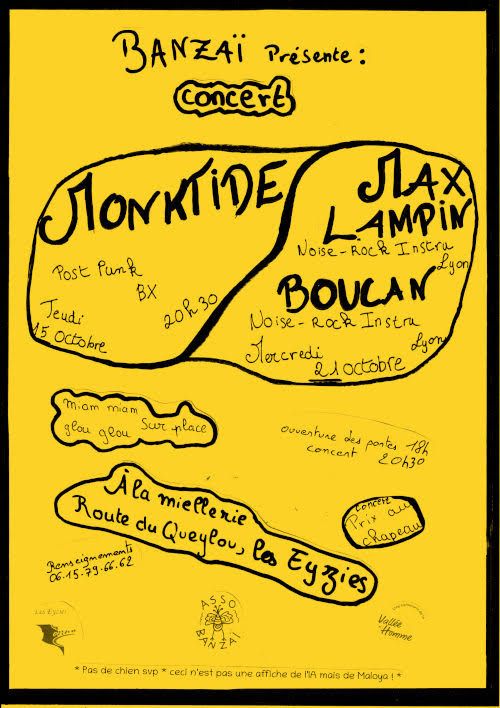 BANZAÏ Présente :
concert
MONKTIDE
Post Punk
BX
Jeudi
15 Octobre
20h30
MAX
LAMPIN
Noise-Rock Instru
Lyon
BOUCAN
Noise-Rock Instru
Lyon
Mercredi
21 octobre
miam miam
glou glou sur place
ouverture des portes 18h
concert 20h30
À la miellerie
Route du Queylou, les Eyzies
concert
Prix au
chapeau
Renseignements
06.15.79.66.62
Les Eyzies
ASSO
BANZAÏ
Vallée
Homme
* Pas de chien svp * ceci n'est pas une affiche de l'IA mais de Maloya ! *